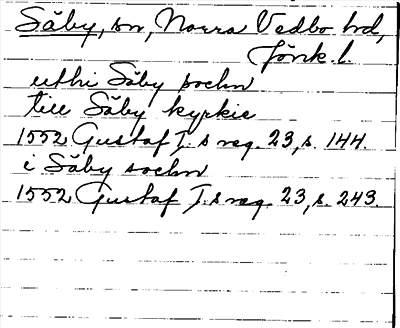 Säby, sn, Norra Vedbo hd,
Jönk. l.
uthi Säby sochn
till Säby kyrkie
1552 Gustaf I.s reg. 23, s. 144.
i Säby sochn
1552 Gustaf I.s reg. 23, s. 243.